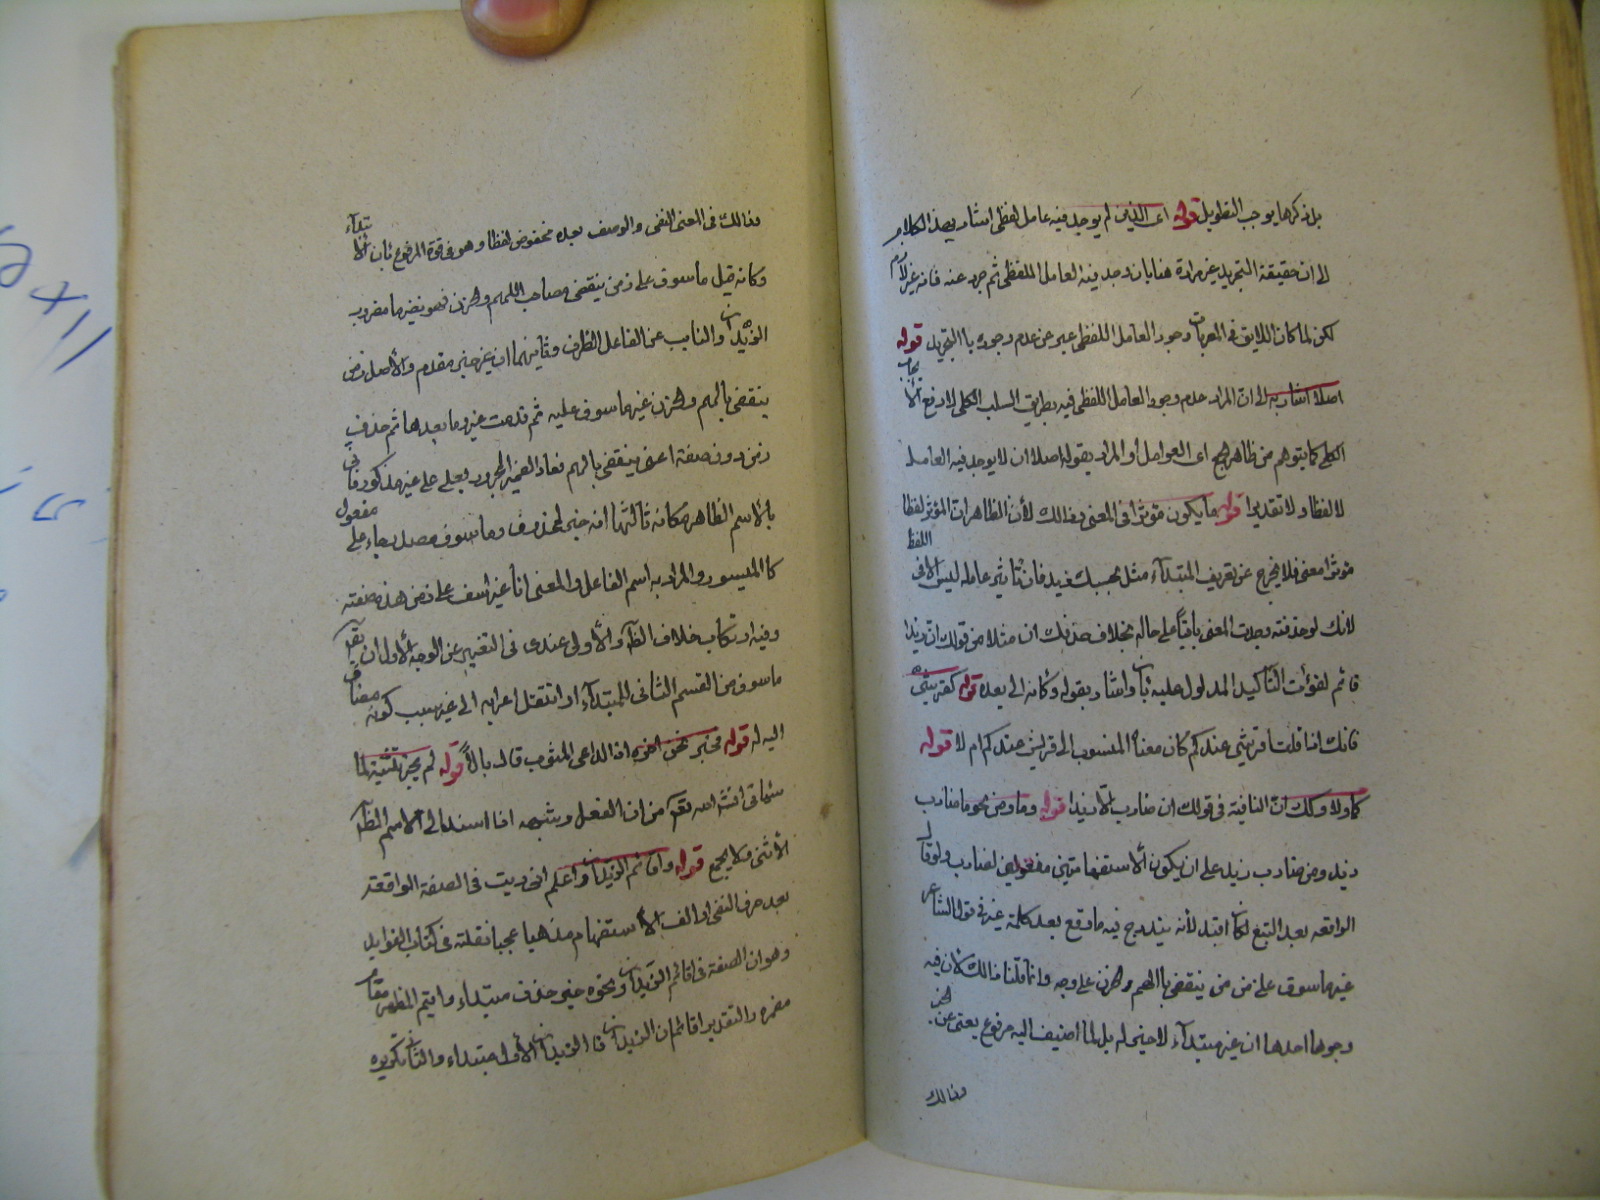 بل ذكرها يوجب التطويل قوله اى الذى لم يوجد فيه عامل لفظى اشار بهذا الكلام
لا ان حقيقة التجريد غير مرادة هنا بان وجد فيه العامل اللفظى ثم جرد عنه فانه غير لازم
لكن لما كان اللايق فى المعربات وجود العامل اللفظى عبر عن عدم وجوده باالتجريد قوله
اصلا اشار به الى ان المراد عدم وجود العامل اللفظى فيه بطريق السلب الكلى لا رفع الأيجاب
الكلى كما يتوهم من ظاهر جمع اى العوامل أو المراد بقوله اصلا ان لا يوجد فيه العامل
لا لفظا ولا تقديرا قوله ما يكون مؤثرا فى المعنى وذالك لأن الظاهر ان المؤثر لفظا
مؤثرا معنى فلا يخرج عن تعريف المبتدآء مثل بحسبك زيد فان تأثير عامله ليس الا فى اللفظ
لانك لو حذفته وجدت المعنى باقيا على حاله بخلاف حذفك ان مثلا من قولك ان زيدا
قائم لفوأت التأكيد المدلول عليه بأن واشار بقوله وكانه الى بعده قوله كقريشى
فانك اذا قلت اقريشى عندكم كان معناه المنسوب الى قريش عندكم ام لا قوله
كما ولا وكك ان النافية فى قولك ان ضارب الا زيدا قوله وما ومن نحو ما ضارب
زيد ومن ضارب زيد على ان يكون الاستفهاميتين مفعولين لضارب ولو قال
الواقعه بعد النفى لكان افيد لأنه يندرج فيه ما وقع بعد كلمة غير فى قول الشاعر
غير ماسوف على زمن ينقضى باالهم والحزن على وجه وانما قلنا ذالك لأن فيه
وجوها احدها ان غير مبتدآء لا خبر له بل لما اضيف اليه مرفوع يغنى عن الخبر
وذالك
وذالك فى المعنى النفى والوصف بعده مخفوض لفظا وهو فى قوة المرفوع بأبتدآء
وكانه قيل ماسوف على زمن ينقضى مصاحب اللهم والحزن فهو نضير ما مضروب
الزيدان والنايب عن الفاعل الظرف وثانيهما ان غير خبر مقدم والأصل زمن
ينقضى بالهم والحزن غير ماسوف عليه ثم قدمت غير وما بعدها ثم حذف
زمن دون صفته اعنى ينقضى بالهم فعاد الضمير المجرور بعلى على غير مذكور فأتى
بالأسم الظاهر مكانه ثالثها انه خبر لمحذوف وماسوف مصدر جاء على مفعول
كاالميسور والمراد به اسم الفاعل والمعنى انا غير اسف على زمن هذه صفته
وفيه ارتكاب خلاف الظآ والأولى عندى فى التفسير عن الوجه الأول ان يقآ
ماسوف من القسم الثانى للمبتدآء انتقل اعرابه الى غير بسبب كونه مضاف
اليه له قوله فخبر نحن اخره اذا الداعى المثوب قال يالا قوله لم يجز تثنيته لما
سياتى انشآ الله تعآ من ان الفعل وشبهه اذا اسند الى الاسم الظآ
لا يثنى ولا يجمع قوله واقائم الزيدان واعلم انى رايت فى الصفة الواقعة
بعد حرف النفى او الف الاستفهام مذهبا عجيبا نقلته فى كتاب الفوايد
وهو ان الصفة فى اقائم الزيدان ونحوه خبر حذف مبتداء واقيم المظهر مقام
مضمره والتقدير اقائمان الزيدان فا الزيدان الأول مبتداء والثانى تكريره